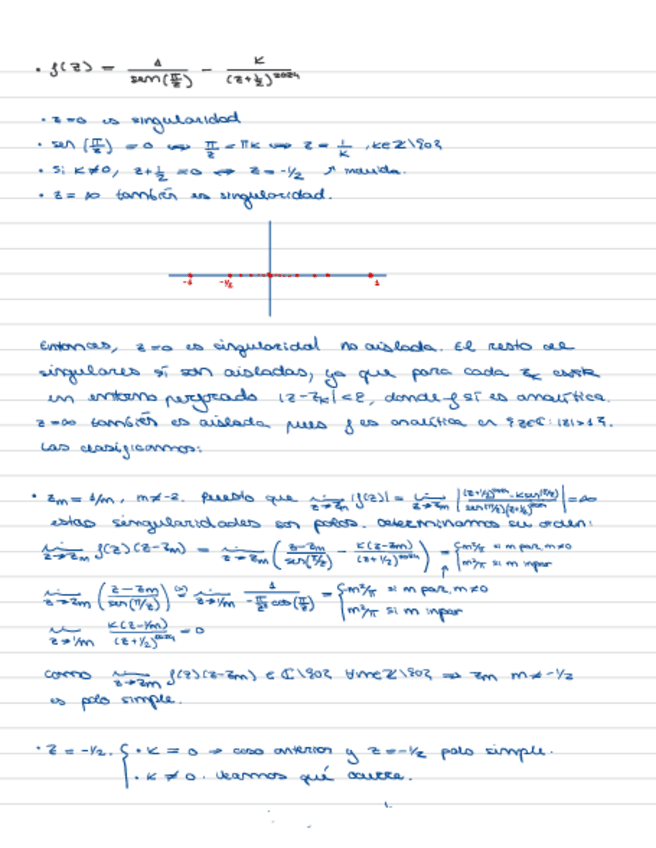 · f(z) = 1/sen(π/z) - K/(z+½)^2024
· z=0 es singularidad
· sen(π/z) = 0 ⇔ π/z = πk ⇔ z = 1/k, k∈Z\{0}
· Si K≠0, z+½ = 0 ⇔ z = -1/2
· z = ∞ también es singularidad.
-1 -½ 1
Entonces, z=0 es singularidad no aislada. El resto de
singulares sí son aisladas, ya que para cada z_k existe
un entorno perforado |z-z_k|<ε, donde f sí es analítica.
z=∞ también es aislada pues f es analítica en {z∈C: |z|>1}.
Las clasificamos:
· z_m = 1/m, m≠-2. Puesto que lim z→z_m |f(z)| = lim z→z_m |((z+½)^2024 - K sen(π/z))/(sen(π/z)(z+½)^2024)| = ∞
estas singularidades son polos. Determinamos su orden:
lim z→z_m f(z)(z-z_m) = lim z→z_m ((z-z_m)/sen(π/z) - K(z-z_m)/(z+½)^2024) = { si m par, m≠0 si m impar
lim z→z_m ((z-z_m)/sen(π/z)) = lim z→1/m 1/(-π/z² cos(π/z)) = { si m par, m≠0
m²/π si m impar
lim z→1/m K(z-1/m)/(z+½)^2024 = 0
como lim z→z_m f(z)(z-z_m) ∈ C\{0} ∀m∈Z\{0} ⇒ z_m m≠-1/2
es polo simple.
· z = -1/2. { · K = 0 ⇒ caso anterior y z=-1/2 polo simple.
· K ≠ 0. Veamos qué ocurre.